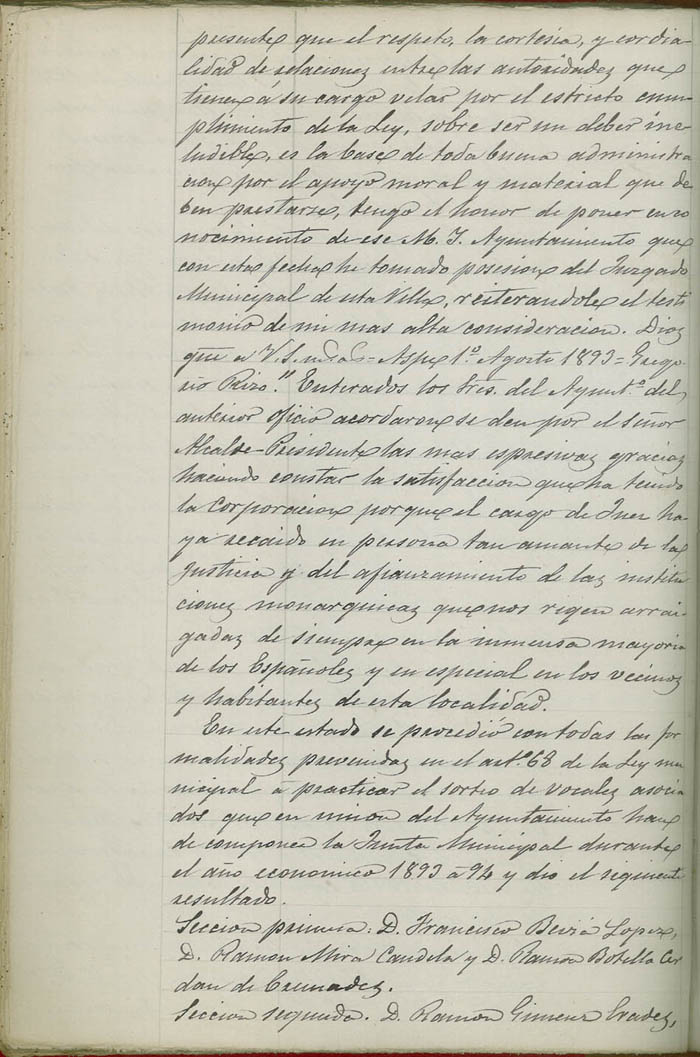 presente que el respeto, la cortesia, y cordia
lidad de relaciones entre las autoridades que
tienen á su cargo velar por el estricto cum
plimiento de la Ley, sobre ser un deber ine
ludible, es la base de toda buena administra
cion por el apoyo moral y material que de
ben prestarse, tengo el honor de poner en co
nocimiento de ese M. I. Ayuntamiento que
con esta fecha he tomado posesion del Juzgado
Municipal de esta Villa, reiterandole el testi
monio de mi mas alta consideracion. Dios
gue a V.S. m.s a.s = Aspe 1.º Agosto 1893 = Grego
rio Rizo." Enterados los Sres. del Ayunt.º del
anterior oficio acordaron se den por el Señor
Alcalde-Presidente las mas espresivas gracias
haciendo constar la satisfaccion que ha tenido
la Corporacion porque el cargo de Juez ha
ya recaido en persona tan amante de la
justicia y del afianzamiento de las institu
ciones monarquicas que nos rigen arrai
gadas de siempre en la inmensa mayoria
de los Españoles y en especial en los vecinos
y habitantes de esta localidad.
En este estado se procedió con todas las for
malidades prevenidas en el art.º 68 de la Ley mu
nicipal á practicar el sorteo de vocales asocia
dos que en union del Ayuntamiento han
de componer la Junta Municipal durante
el año economico 1893 á 94 y dio el siguiente
resultado.
Seccion primera: D. Francisco Beviá Lopez,
D. Ramon Mira Candela y D. Ramon Botella Cer
dan de Cremades.
Seccion segunda. D. Ramon Gimenez Prades,